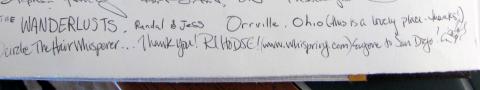 THE WANDERLUSTS, Randal & Jess Orrville, Ohio (this is a lovely place - thanks!)
The Hair Whisperer... Thank you! RI to DSE! (www.whispring.com) Eugene to San Diego!